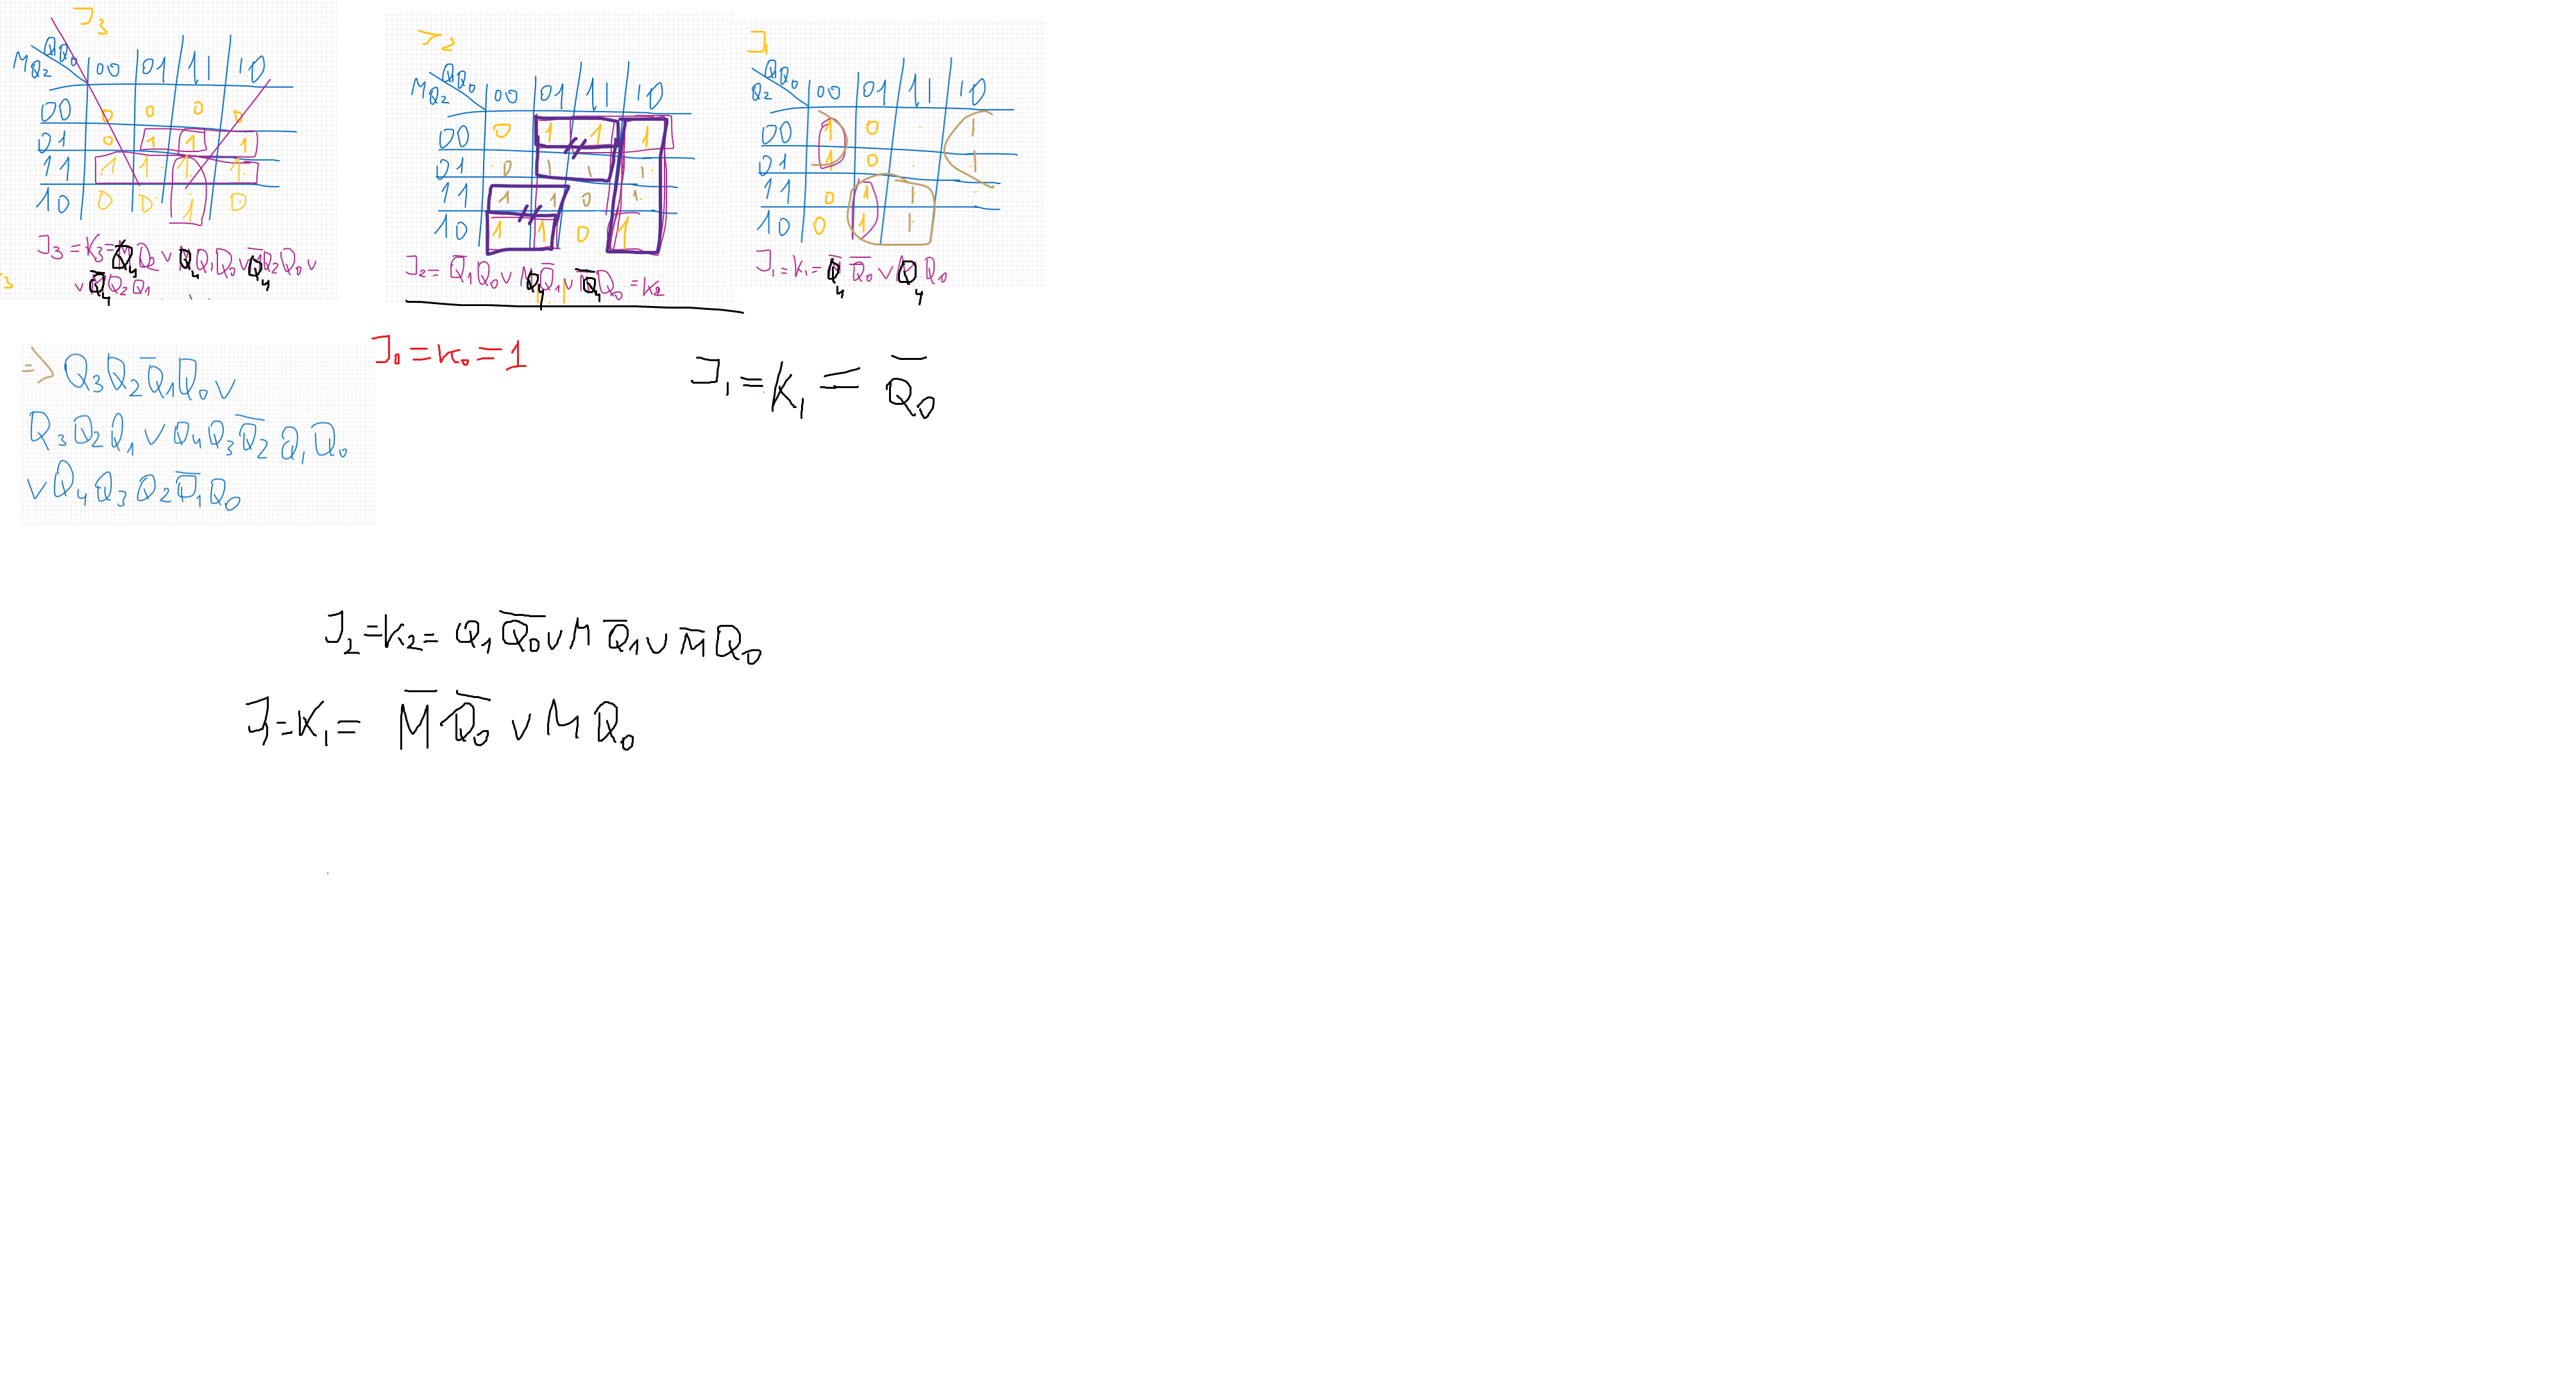 J₃
MQ₂ Q₁Q₀ 00 01 11 10
00 0 0 0 0
01 0 1 1 1
11 1 1 1 1
10 0 0 1 0
J₃ = K₃ = Q₄Q₂ ∨ Q₄Q₁Q₀ ∨ Q̅₄Q₂Q₀ ∨
∨ Q̅₄Q₂Q₁
3
J₂
MQ₂ Q₁Q₀ 00 01 11 10
00 0 1 1 1
01 0 1 1 1
11 1 1 0 1
10 1 1 0 1
J₂ = Q̅₁Q₀ ∨ Q₄Q̅₁ ∨ Q̅₄Q₀ = K₂
J₁
Q₂ Q₁Q₀ 00 01 11 10
00 1 0 1
01 1 0 1
11 0 1 1
10 0 1 1
J₁ = K₁ = Q̅₄ Q̅₀ ∨ Q₄ Q₀
J₀ = K₀ = 1
J₁ = K₁ = Q̅₀
=> Q₃Q₂Q̅₁Q₀ ∨
Q₃Q₂Q₁ ∨ Q₄Q₃Q̅₂Q₁Q₀
∨ Q₄Q₃Q₂Q̅₁Q₀
J₂ = K₂ = Q₁Q̅₀ ∨ MQ̅₁ ∨ M̅Q₀
J = K₁ = M̅ Q̅₀ ∨ M Q₀